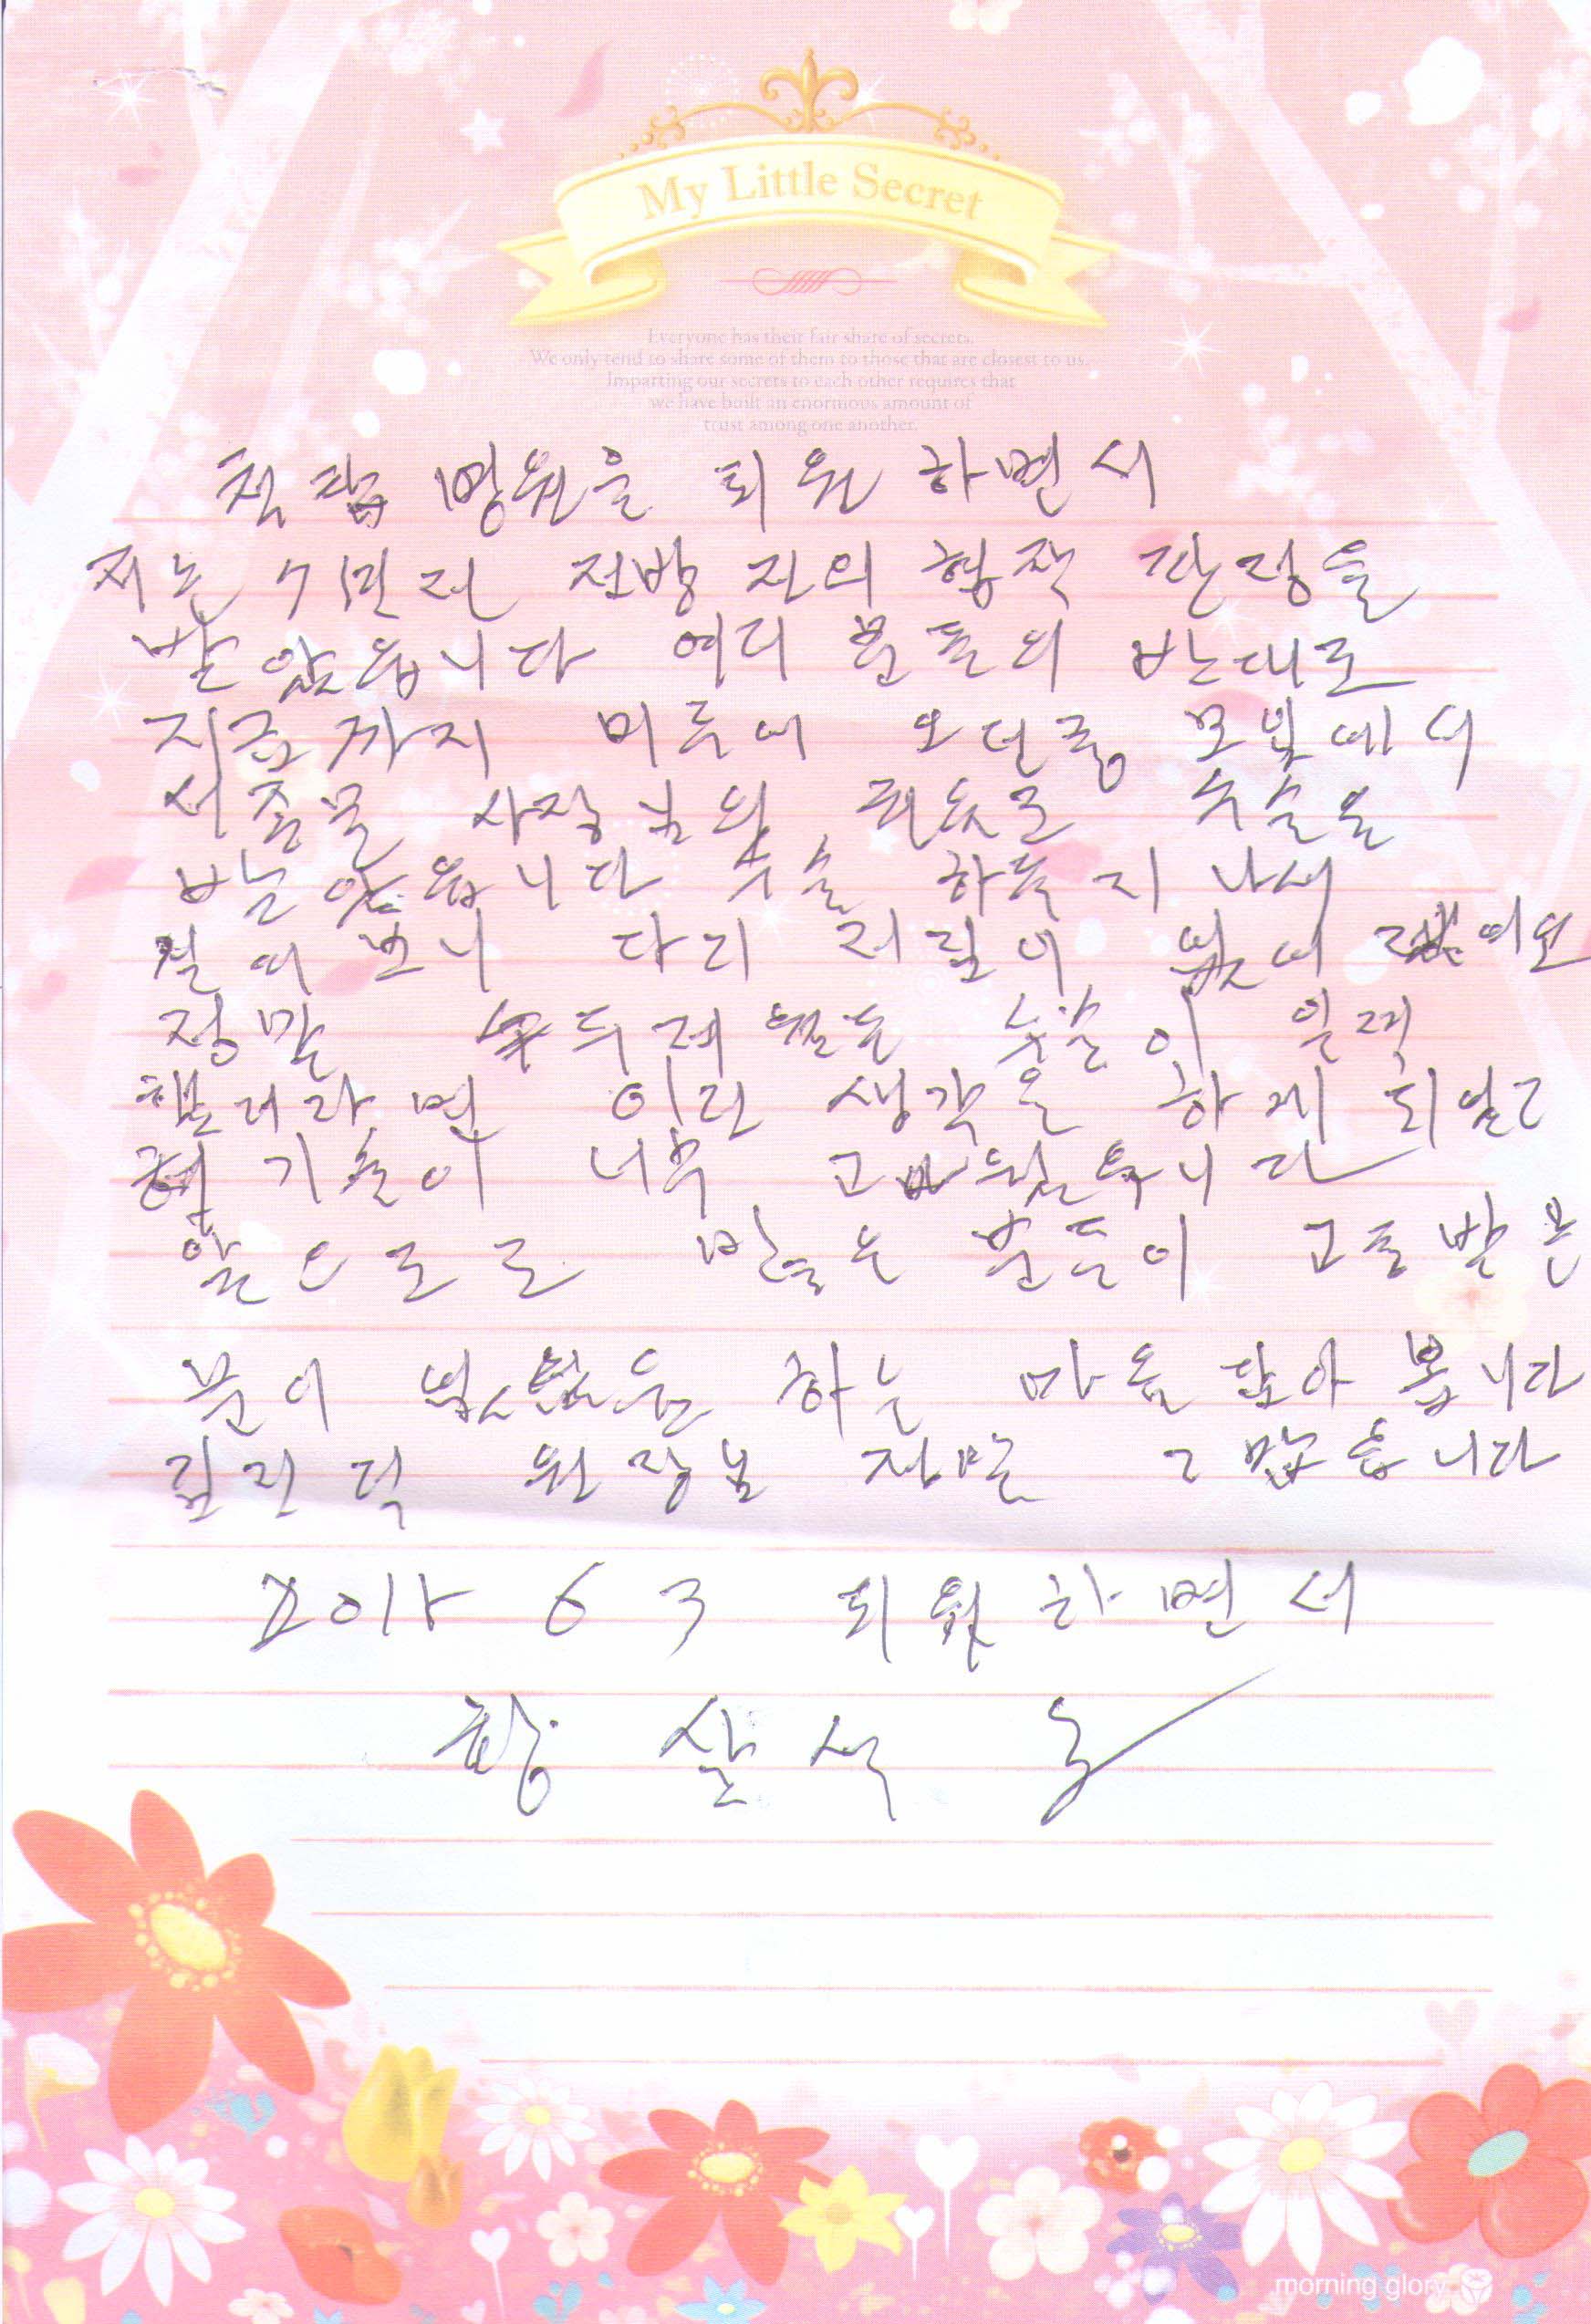 My Little Secret
Everyone has their fair share of secrets.
We only tend to share some of them to those that are closest to us.
Imparting our secrets to each other requires that
we have built an enormous amount of
trust among one another.
척탑 병원을 퇴원 하면서
저는 7년전 전방 전의 형적 판정을
받 았읍니다 여러 분들의 반대로
지금까지 미루어 오던중 모임에서
서종문 사장님의 권유로 수술을
받았읍니다 수술 하루 지나서
걸어보니 다리 저림이 없어 졌어요
정말 수술이 일찍
했더라면 이란 생각을 하게 되었고
기술이 너무 고마웠읍니다
앞으로로 많은 분들이 고통 받은
분이 없었음 하는 마음 담아 봅니다
원장님 정말 고맙읍니다
6 3 퇴원하면서